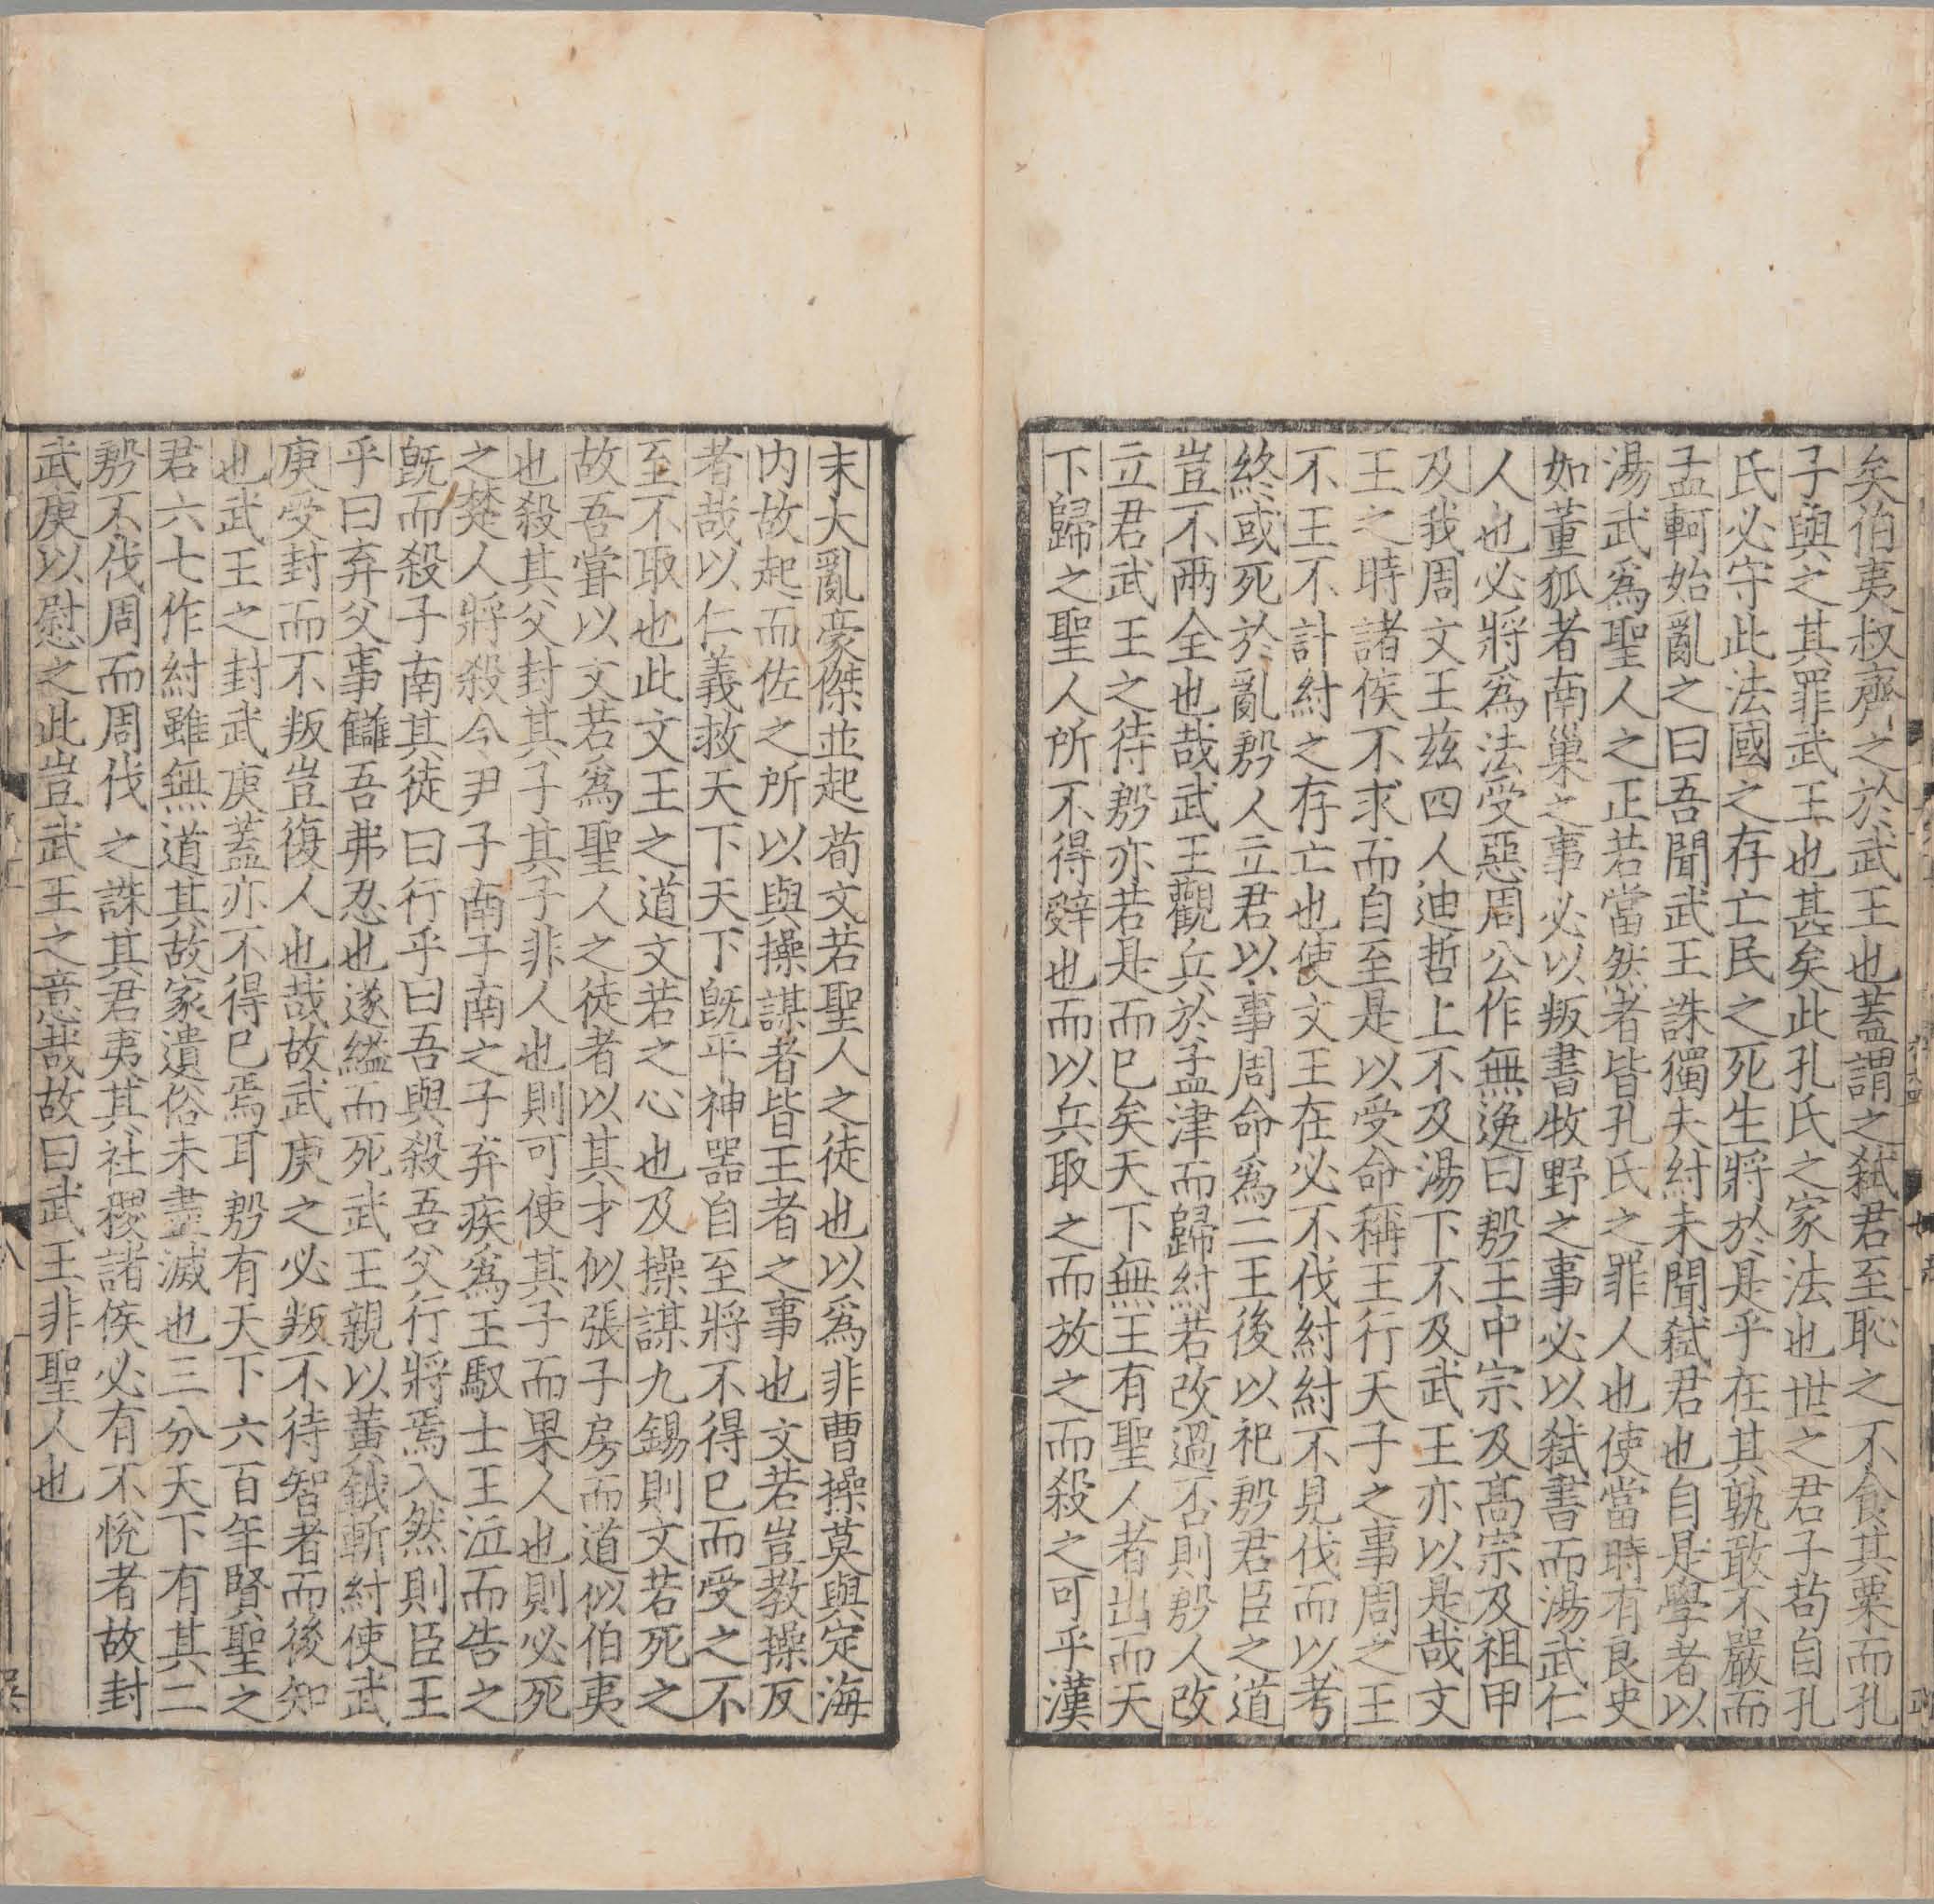 矣伯夷叔齊之於武王也蓋謂之弒君至恥之不食其粟而孔
子與之其罪武王也甚矣此孔氏之家法也世之君子苟自孔
氏必守此法國之存亡民之死生將於是乎在其孰敢不嚴而
孟軻始亂之曰吾聞武王誅獨夫紂未聞弒君也自是學者以
湯武爲聖人之正若當然者皆孔氏之罪人也使當時有良史
如董狐者南巢之事必以叛書牧野之事必以弒書而湯武仁
人也必將爲法受惡周公作無逸曰殷王中宗及髙宗及祖甲
及我周文王兹四人迪哲上不及湯下不及武王亦以是哉文
王之時諸侯不求而自至是以受命稱王行天子之事周之王
不王不計紂之存亡也使文王在必不伐紂紂不見伐而以考
終或死於亂殷人立君以事周命爲二王後以祀殷君臣之道
豈不兩全也哉武王觀兵於孟津而歸紂若改過否則殷人改
立君武王之待殷亦若是而已矣天下無王有聖人者出而天
下歸之聖人所不得辭也而以兵取之而放之而殺之可乎漢
末大亂豪傑並起荀文若聖人之徒也以爲非曹操莫與定海
内故起而佐之所以與操謀者皆王者之事也文若豈教操反
者哉以仁義救天下天下旣平神器自至將不得已而受之不
至不取也此文王之道文若之心也及操謀九錫則文若死之
故吾嘗以文若爲聖人之徒者以其才似張子房而道似伯夷
也殺其父封其子其子非人也則可使其子而果人也則必死
之楚人將殺令尹子南子南之子弃疾爲王馭士王泣而告之
旣而殺子南其徒曰行乎曰吾與殺吾父行將焉入然則臣王
乎曰弃父事讎吾弗忍也遂縊而死武王親以黄鉞斬紂使武
庚受封而不叛豈復人也哉故武庚之必叛不待智者而後知
也武王之封武庚蓋亦不得已焉耳殷有天下六百年賢聖之
君六七作紂雖無道其故家遺俗未盡滅也三分天下有其二
殷不伐周而周伐之誅其君夷其社稷諸侯必有不悅者故封
武庚以慰之此豈武王之意哉故曰武王非聖人也